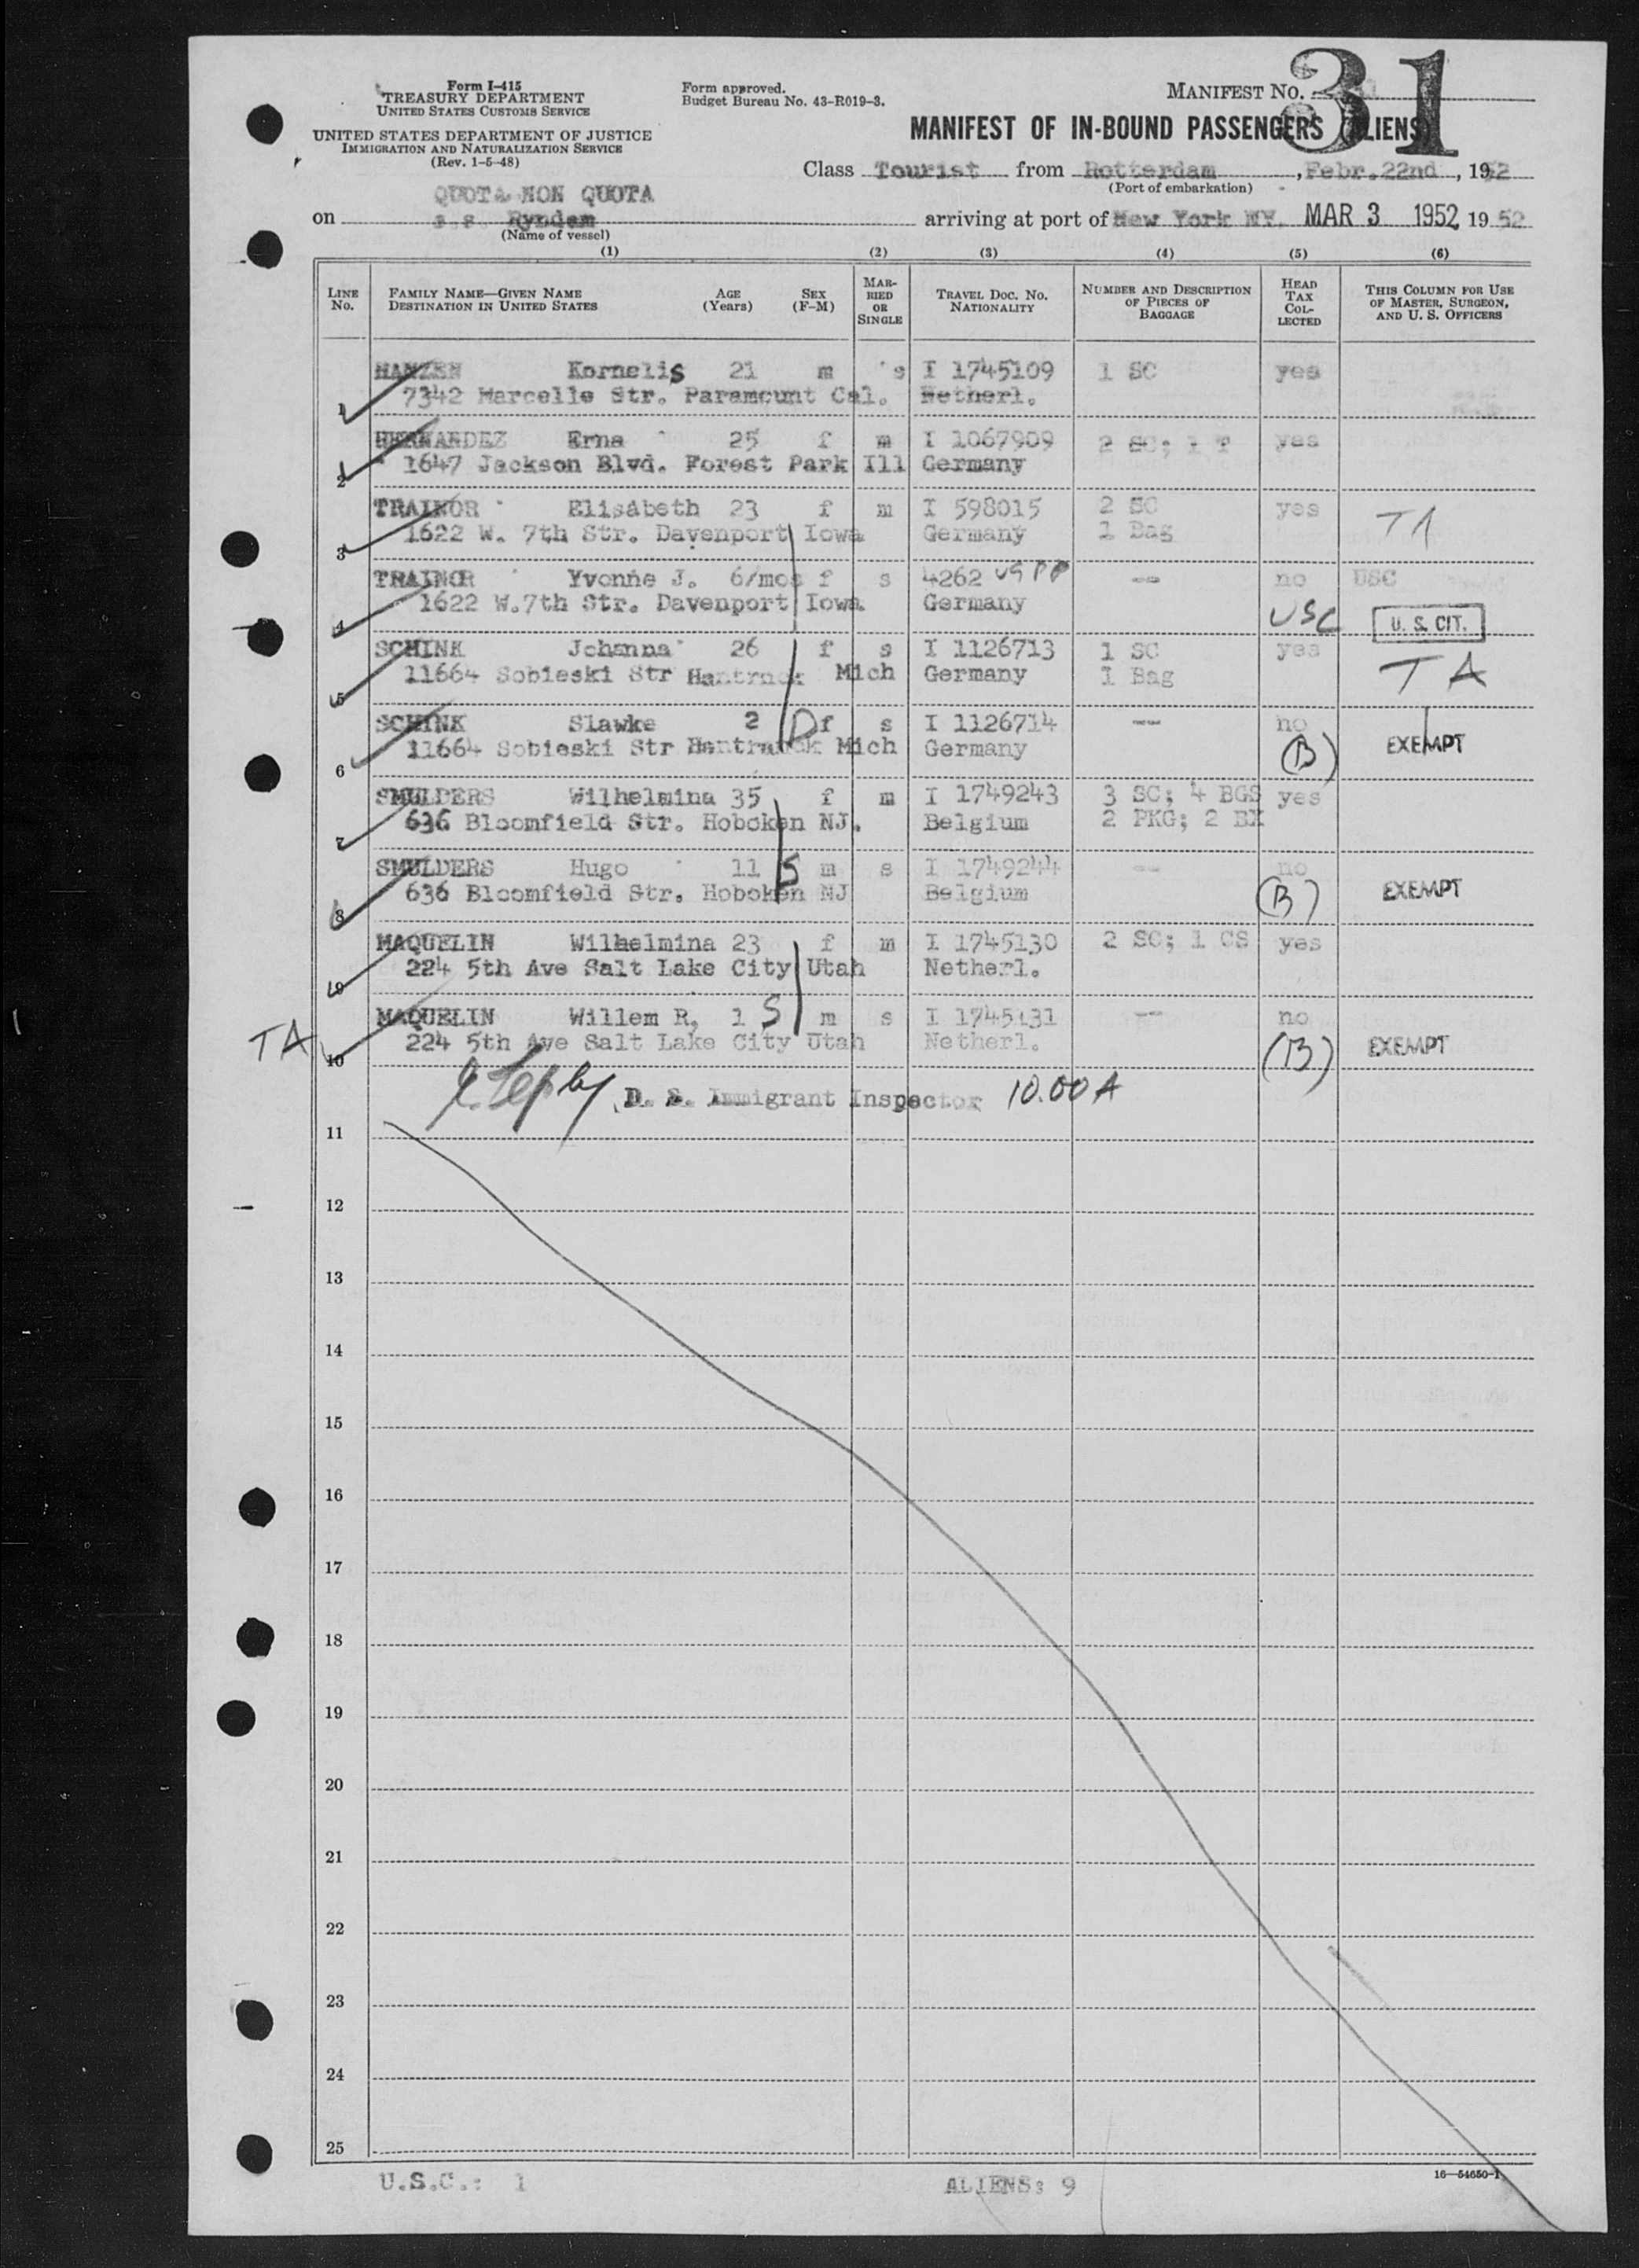 Form I-415
TREASURY DEPARTMENT
UNITED STATES CUSTOMS SERVICE
UNITED STATES DEPARTMENT OF JUSTICE
IMMIGRATION AND NATURALIZATION SERVICE
(Rev. 1-5-48)
Form approved.
Budget Bureau No. 43-R019-3.
MANIFEST NO. 31
MANIFEST OF IN-BOUND PASSENGERS (ALIENS)
Class Tourist from Rotterdam, Febr. 22nd, 1952
(Port of embarkation)
QUOTA NON QUOTA
on s.s. Ryndam arriving at port of New York NY. MAR 3 1952, 1952
(Name of vessel)
(1) (2) (3) (4) (5) (6)
LINE No. FAMILY NAME—GIVEN NAME DESTINATION IN UNITED STATES AGE (Years) SEX (F-M) MARRIED OR SINGLE TRAVEL DOC. NO. NATIONALITY NUMBER AND DESCRIPTION OF PIECES OF BAGGAGE HEAD TAX COLLECTED THIS COLUMN FOR USE OF MASTER, SURGEON, AND U. S. OFFICERS
HANZEN Kornelis 21 m s I 1745109 1 SC yes
1 7342 Marcelle Str. Paramount Cal. Netherl.
HERNANDEZ Erna 25 f m I 1067909 2 SC; 1 T yes
2 1647 Jackson Blvd. Forest Park Ill Germany
TRAINOR Elisabeth 23 f m I 598015 2 SC yes TA
3 1622 W. 7th Str. Davenport Iowa Germany 1 Bag
TRAINOR Yvonne J. 6/mos f s 4262 US PP -- no USC
4 1622 W.7th Str. Davenport Iowa Germany USC U. S. CIT.
SCHINK Johanna 26 f s I 1126713 1 SC yes
5 11664 Sobieski Str Hamtrack Mich Germany 1 Bag TA
SCHINK Slawke 2 D f s I 1126714 -- no
6 11664 Sobieski Str Hamtramck Mich Germany (B) EXEMPT
SMULDERS Wilhelmina 35 f m I 1749243 3 SC; 4 BGS yes
7 636 Bloomfield Str. Hoboken NJ. Belgium 2 PKG; 2 BX
SMULDERS Hugo 11 S m s I 1749244 -- no
8 636 Bloomfield Str. Hoboken NJ Belgium (B) EXEMPT
MAQUELIN Wilhelmina 23 f m I 1745130 2 SC; 1 CS yes
9 224 5th Ave Salt Lake City Utah Netherl.
MAQUELIN Willem R, 1 S m s I 1745131 -- no
TA 10 224 5th Ave Salt Lake City Utah Netherl. (B) EXEMPT
Immigrant Inspector 10.00 A
11
12
13
14
15
16
17
18
19
20
21
22
23
24
25
U.S.C.: 1 ALIENS: 9
16—54650-1